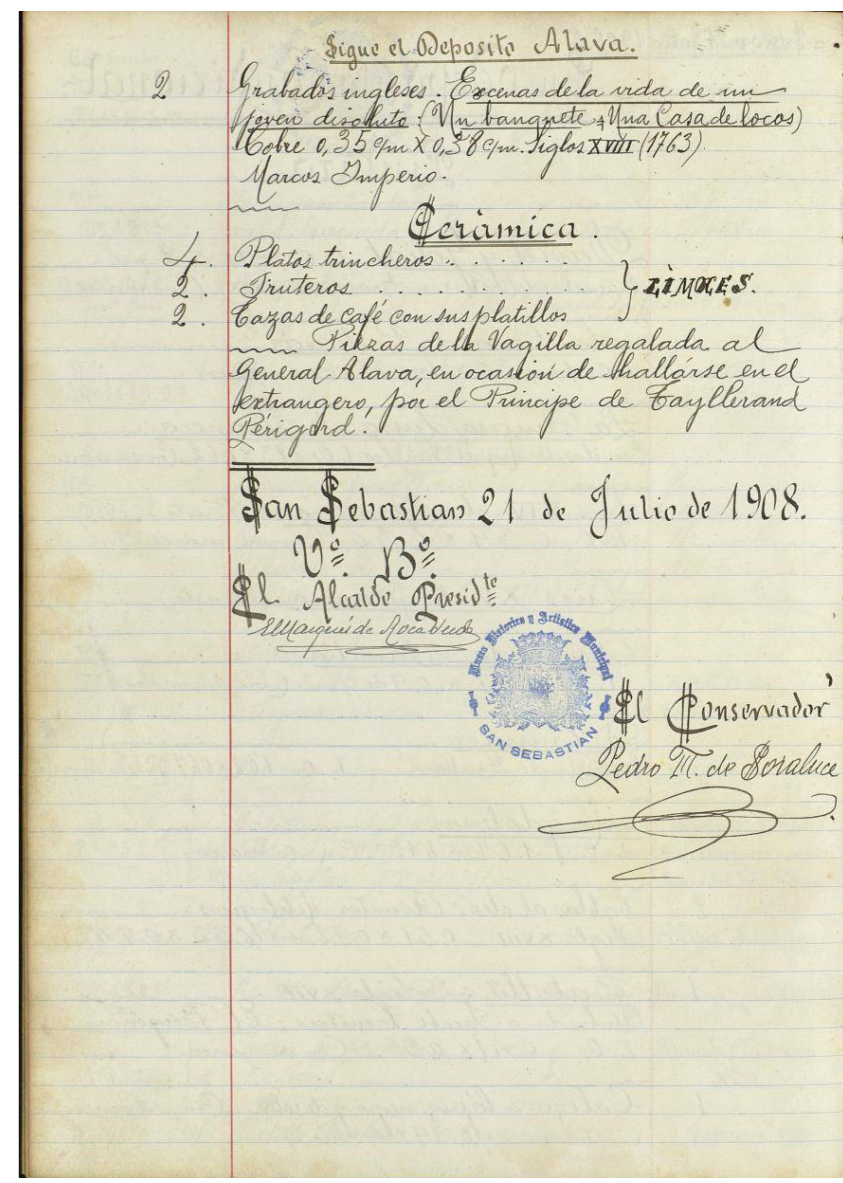 Sigue el Deposito Alava.
2 Grabados ingleses. Escenas de la vida de un
joven disoluto: (Un banquete y Una Casa de locos)
Cobre 0,35 c/m X 0,38 c/m. Siglos XVIII (1763)
Marcos Imperio.
Cerámica.
4. Platos trincheros . . . . . .
2. Fruteros . . . . . . . . } LIMOGES.
2. Tazas de café con sus platillos
Piezas de la Vagilla regalada al
General Alava, en ocasión de hallárse en el
extrangero, por el Principe de Tayllerand
Périgord.
San Sebastian 21 de Julio de 1908.
Vº. Bº.
El Alcalde Presidte
El Marqués de Rocaverde
Museo Historico y Artistico Municipal
SAN SEBASTIAN
El Conservador
Pedro M. de Soraluce